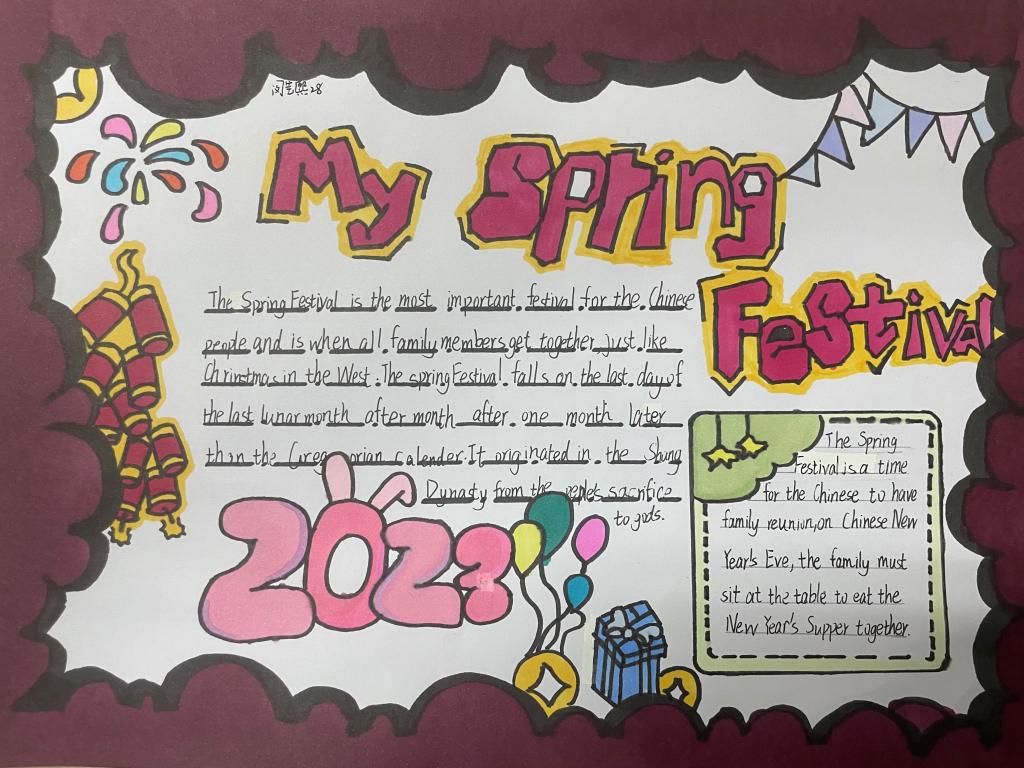 闵芸熙28
My Spring
Festival
The Spring Festival is the most important. fetival for the. Chinese
people and is when all family members get together just like
Chrinstmas in the West. The spring Festival falls on the last day of
the last lunar month after month after one month later
than the Gregorian calender. It originated in the Shung
Dynasty from the people's sacrifice
to gods.
2023
The Spring
Festival is a time
for the Chinese to have
family reunion, on Chinese New
Year's Eve, the family must
sit at the table to eat the
New Year's Supper together.